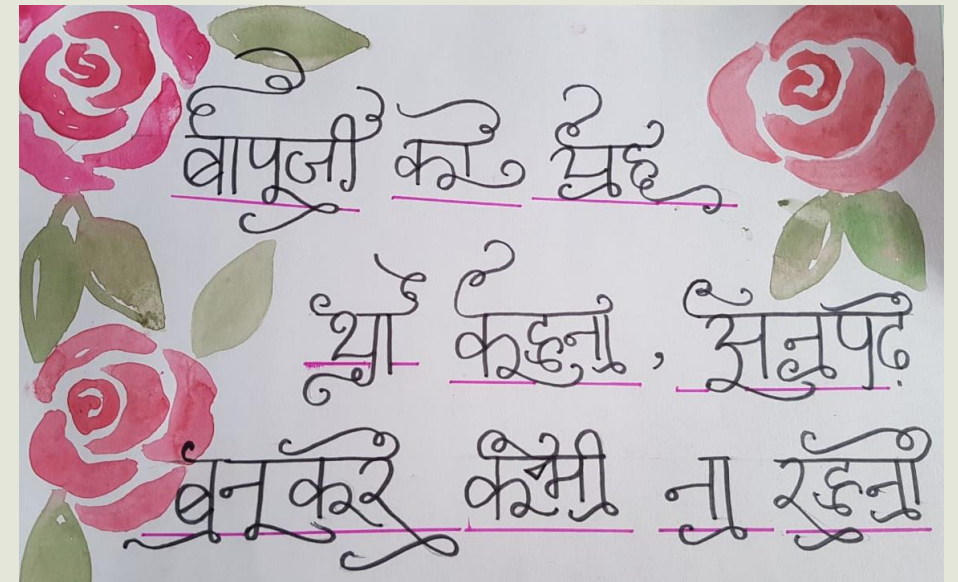 बापूजी का यह
था कहना, अनपढ़
बनकर कभी ना रहना